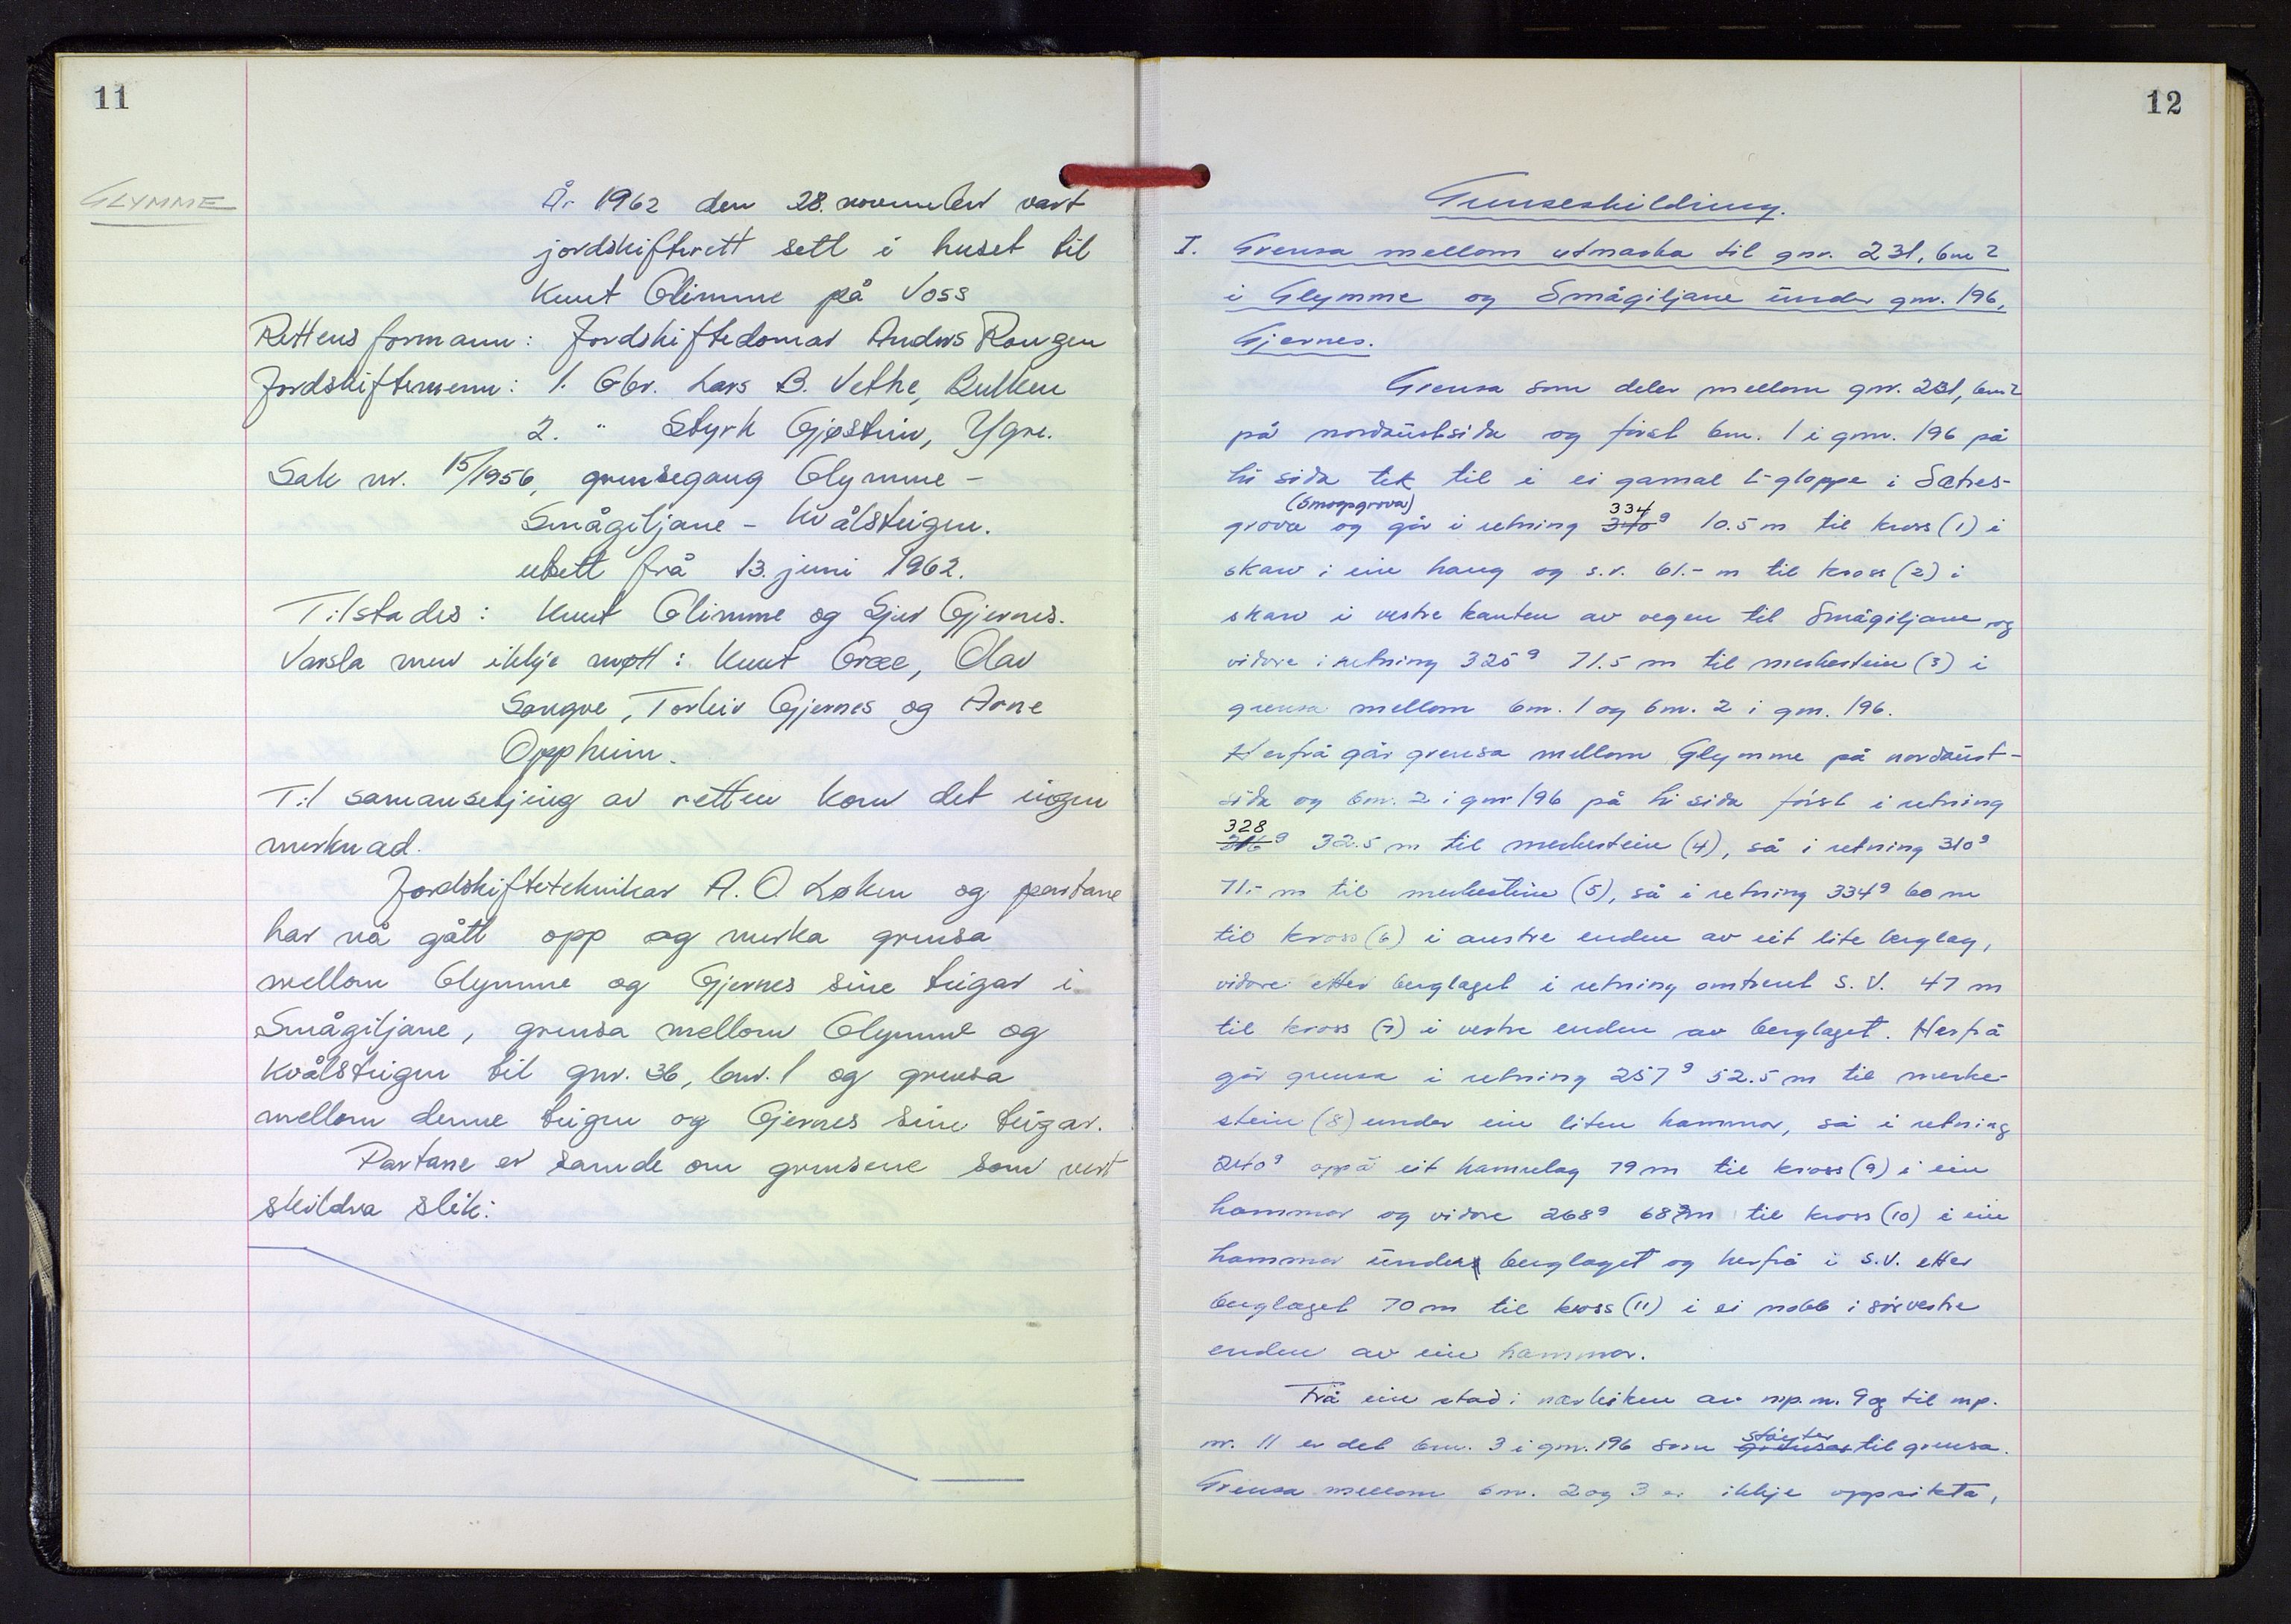 11
GLYMME
År 1962 den 28. november vart
jordskifterett sett i huset til
Knut Glimme på Voss
Rettens formann: Jordskiftedomar Anders Rongen
Jordskiftemenn: 1. Gbr. Lars B. Vethe, Bulken
2. " Styrk Gjøstein, Ygre.
Sak nr. 15/1956, grensegang Glymme -
Smågiljane - Kvålsteigen.
utsett frå 13. juni 1962.
Tilstades: Knut Glimme og Sjur Gjernes.
Varsla men ikkje møtt: Knut Græe, Olav
Songve, Torleiv Gjernes og Arne
Oppheim.
Til samansetjing av retten kom det ingen
merknad.
Jordskifteteknikar A. O. Løken og partane
har nå gått opp og merka grensa
mellom Glymme og Gjernes sine teigar i
Smågiljane, grensa mellom Glymme og
Kvålsteigen til gnr. 36, bnr. 1 og grensa
mellom denne teigen og Gjernes sine teigar.
Partane er samde om grensene som vert
skildra slik:
12
Grenseskildring.
I. Grensa mellom utmarka til gnr. 231, bnr 2
i Glymme og Smågiljane under gnr. 196,
Gjernes.
Grensa som deler mellom gnr. 231, bnr 2
på nordaustsida og først bnr. 1 i gnr. 196 på
hi sida tek til i ei gamal t-gloppe i Sætres-
(Smogpgrova) 334
grova og går i retning 310g 10.5 m til kross (1) i
skarv i ein haug og s.r. 61.- m til kross (2) i
skarv i vestre kanten av vegen til Smågiljane og
vidare i retning 325g 71.5 m til merkestein (3) i
grensa mellom bnr. 1 og bnr. 2 i gnr. 196.
Herfrå går grensa mellom Glymme på nordaust-
sida og bnr. 2 i gnr 196 på hi sida først i retning
328
316g 32.5 m til merkestein (4), så i retning 310g
71.- m til merkestein (5), så i retning 334g 60 m
til kross (6) i austre enden av eit lite berglag,
vidare etter berglaget i retning omtrent S. V. 47 m
til kross (7) i vestre enden av berglaget. Herfrå
går grensa i retning 257g 52.5 m til merke-
stein (8) under ein liten hammar, så i retning
240g oppå eit hamrelag 79 m til kross (9) i ein
hammar og vidare 268g 68 m til kross (10) i ein
hammar under berglaget og herfrå i S.V. etter
berglaget 70 m til kross (11) i ei nobb i sørvestre
enden av ein hammar.
Frå ein stad i nærleiken av mp. nr. 9 og til mp.
støyter
nr. 11 er det bnr. 3 i gnr. 196 som grensar til grensa.
Grensa mellom bnr. 2 og 3 er ikkje oppsikta,